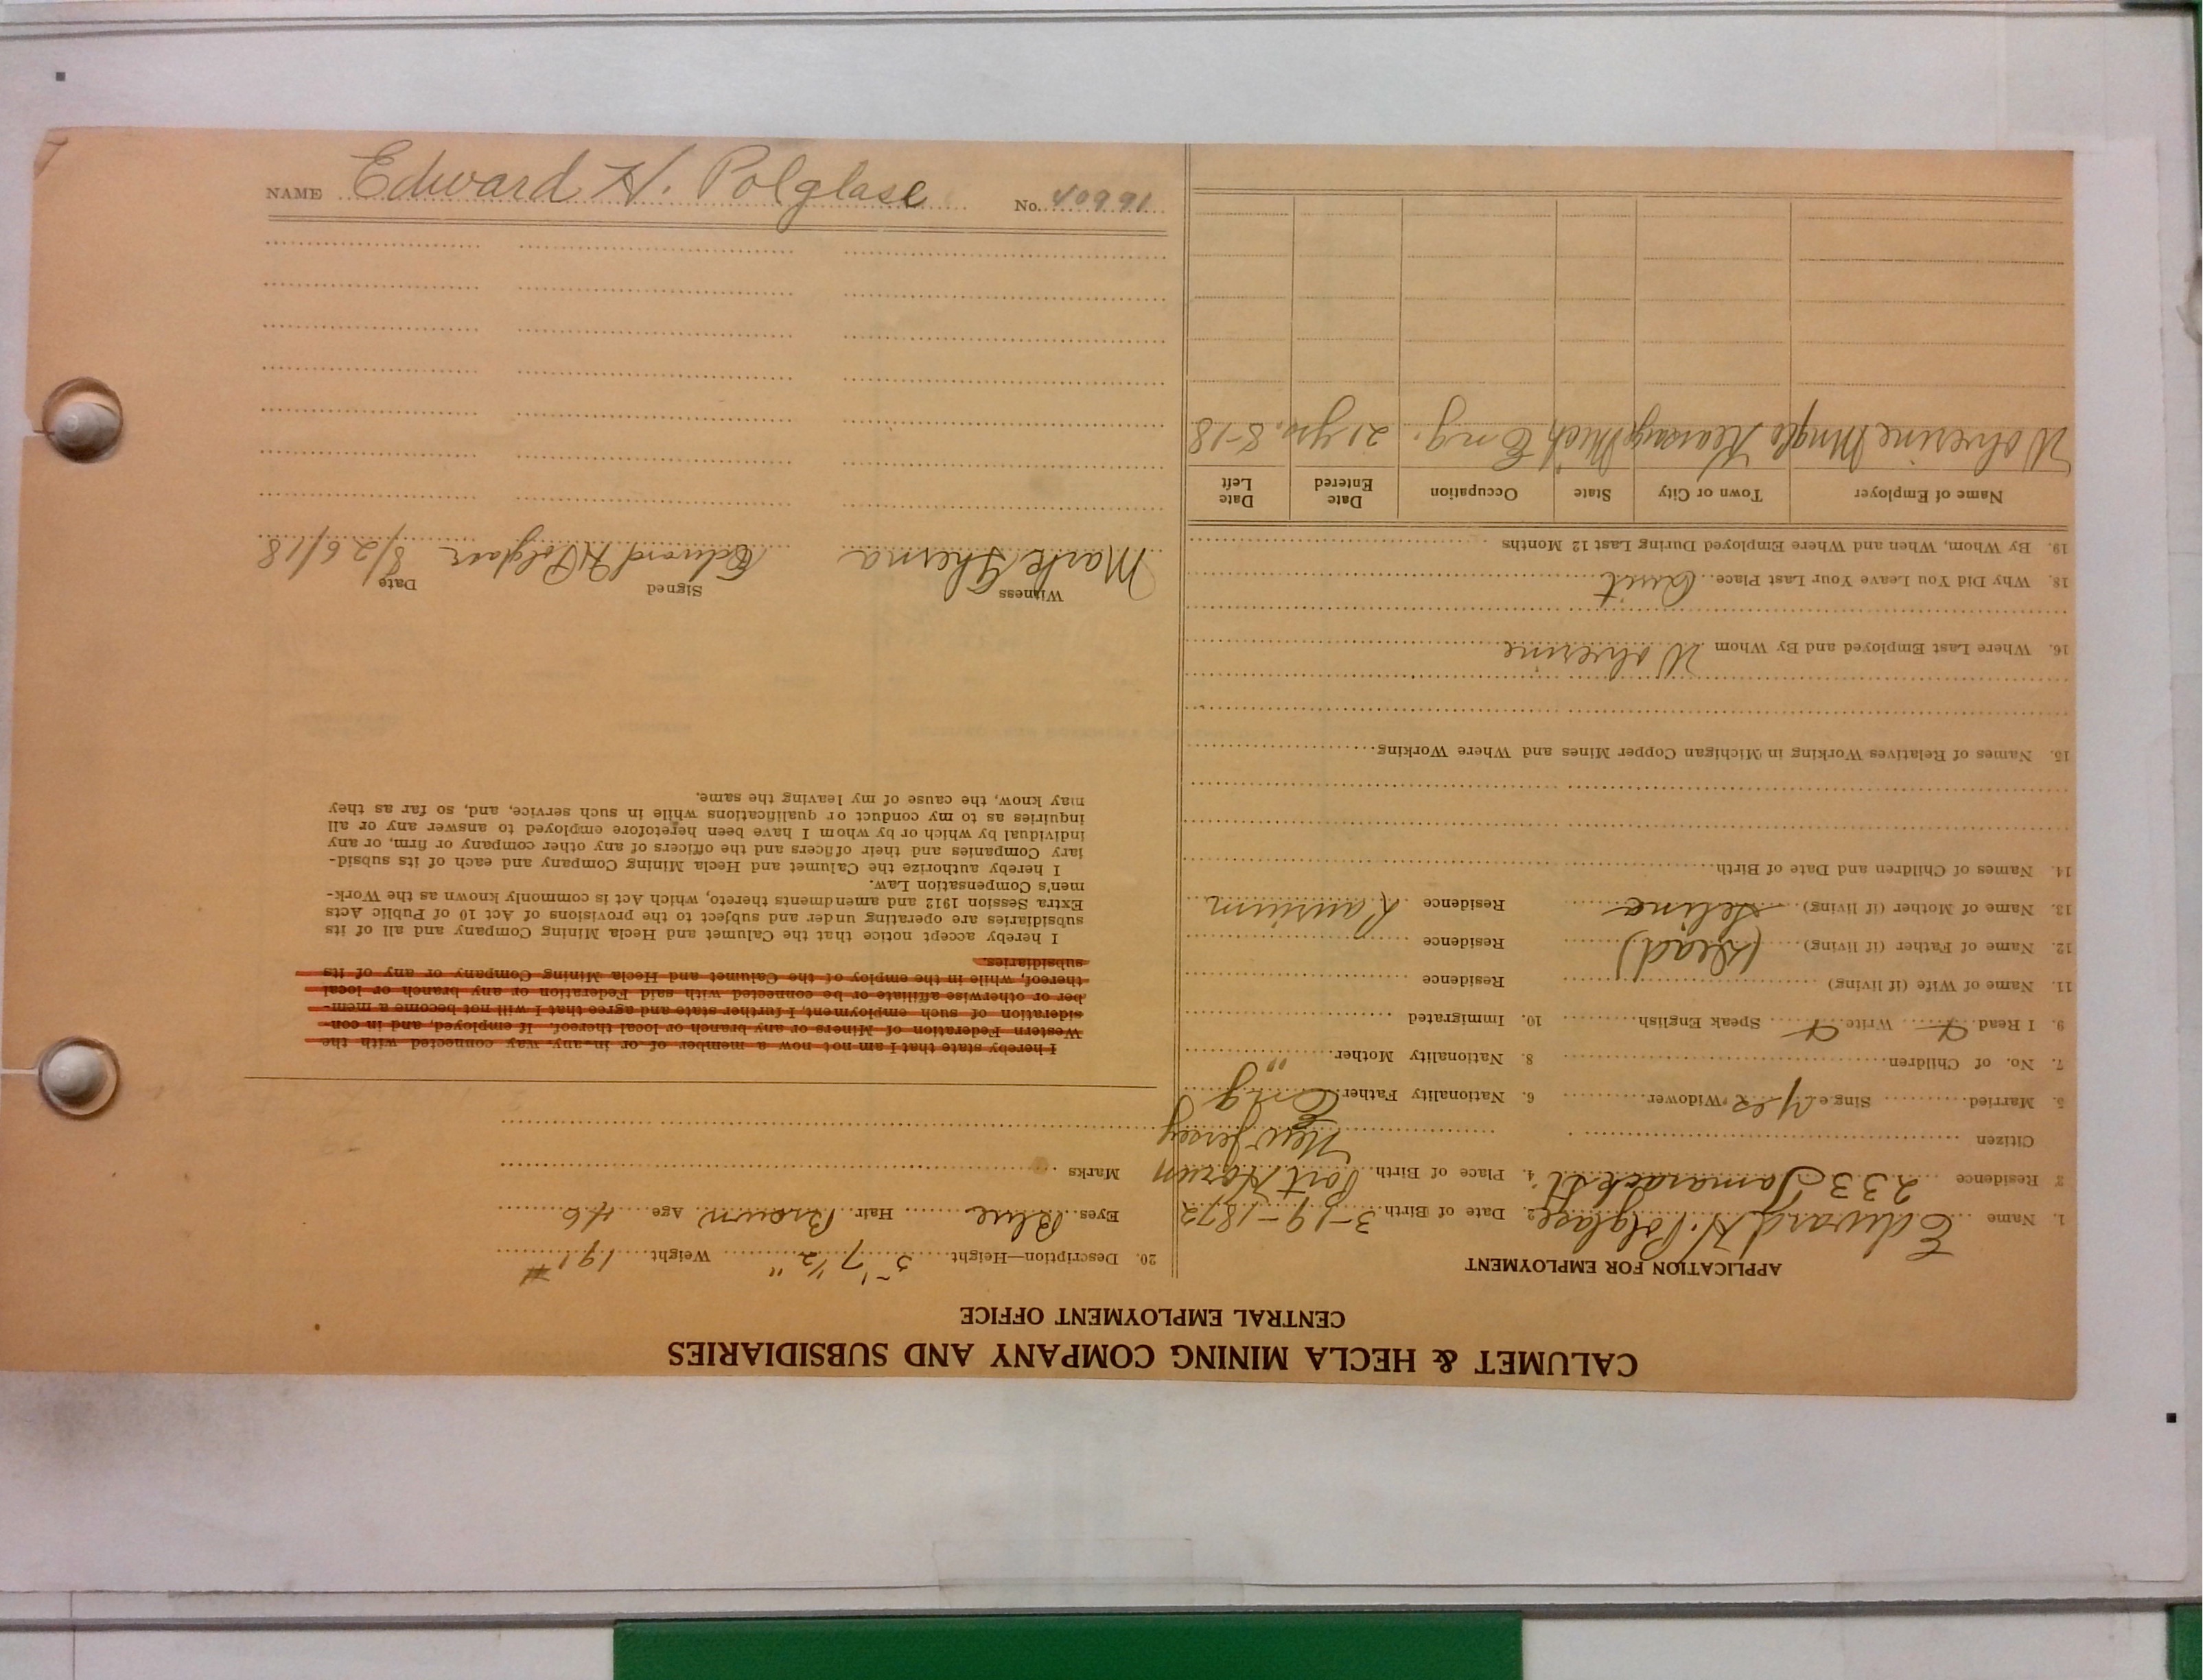 CALUMET & HECLA MINING COMPANY AND SUBSIDIARIES
CENTRAL EMPLOYMENT OFFICE
APPLICATION FOR EMPLOYMENT
1. Name Edward H. Polglase 2. Date of Birth 3-19-1872
3 Residence 233 Tamarack St. 4. Place of Birth Port Horun
Citizen New Jersey
5. Married Single Yes Widower 6. Nationality Father Eng
7. No. of Children 8. Nationality Mother "
9. I Read Write Speak English 10. Immigrated
11. Name of Wife (if living) Residence
12. Name of Father (if living) (Dead) Residence
13. Name of Mother (if living) Selina Residence Laurium
14. Names of Children and Date of Birth
15. Names of Relatives Working in Michigan Copper Mines and Where Working
16. Where Last Employed and By Whom Wolverine
18. Why Did You Leave Your Last Place Quit
19. By Whom, When and Where Employed During Last 12 Months
Name of Employer Town or City State Occupation Date Entered Date Left
Wolverine Mng Co Kearsarge Mich Eng. 21 yrs. 8-18
20. Description—Height 5' 7 1/2" Weight 191 #
Eyes Blue Hair Brown Age 46
Marks
I hereby state that I am not now a member of or in any way connected with the
Western Federation of Miners or any branch or local thereof. If employed, and in con-
sideration of such employment, I further state and agree that I will not become a mem-
ber or otherwise affiliate or be connected with said Federation or any branch or local
thereof, while in the employ of the Calumet and Hecla Mining Company or any of its
subsidiaries.
I hereby accept notice that the Calumet and Hecla Mining Company and all of its
subsidiaries are operating under and subject to the provisions of Act 10 of Public Acts
Extra Session 1912 and amendments thereto, which Act is commonly known as the Work-
men's Compensation Law.
I hereby authorize the Calumet and Hecla Mining Company and each of its subsid-
iary Companies and their officers and the officers of any other company or firm, or any
individual by which or by whom I have been heretofore employed to answer any or all
inquiries as to my conduct or qualifications while in such service, and, so far as they
may know, the cause of my leaving the same.
Witness Signed Date
Mark Edward H Polglase 8/26/18
NAME Edward H. Polglase No. 40991